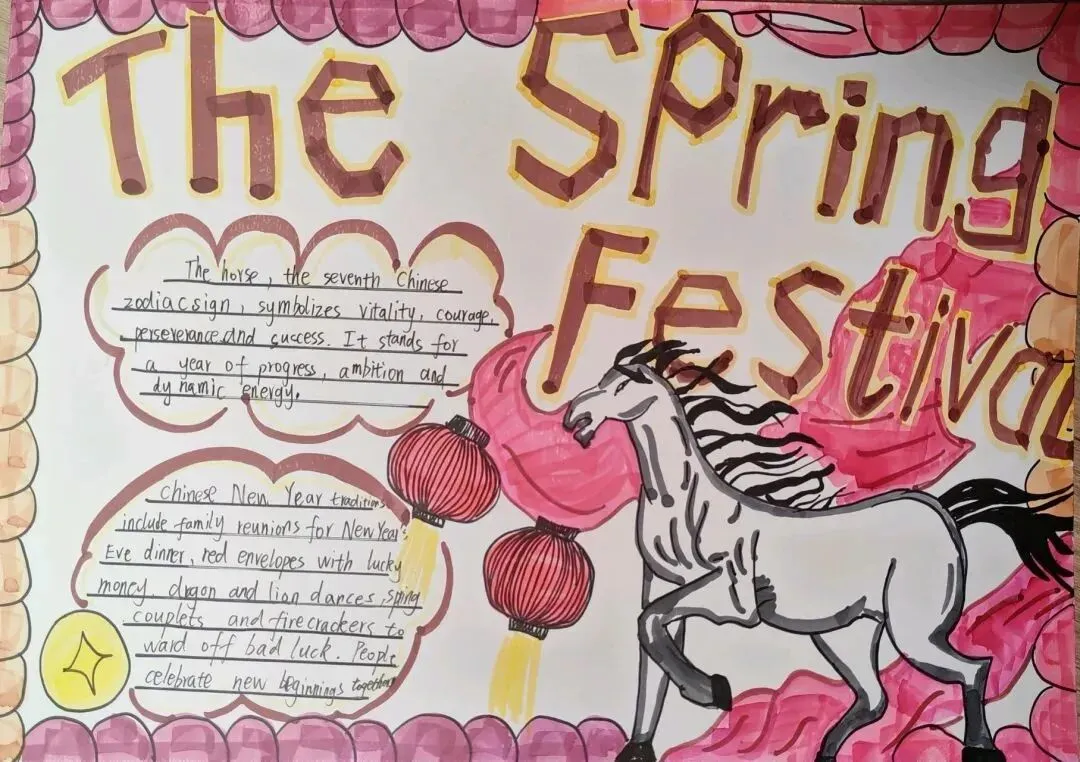 The Spring
Festival
The horse, the seventh Chinese
zodiac sign, symbolizes vitality, courage,
perseverance, and success. It stands for
a year of progress, ambition and
dynamic energy.
Chinese New Year traditions
include family reunions for New Year's
Eve dinner, red envelopes with lucky
money, dragon and lion dances, spring
couplets and firecrackers to
ward off bad luck. People
celebrate new beginnings together